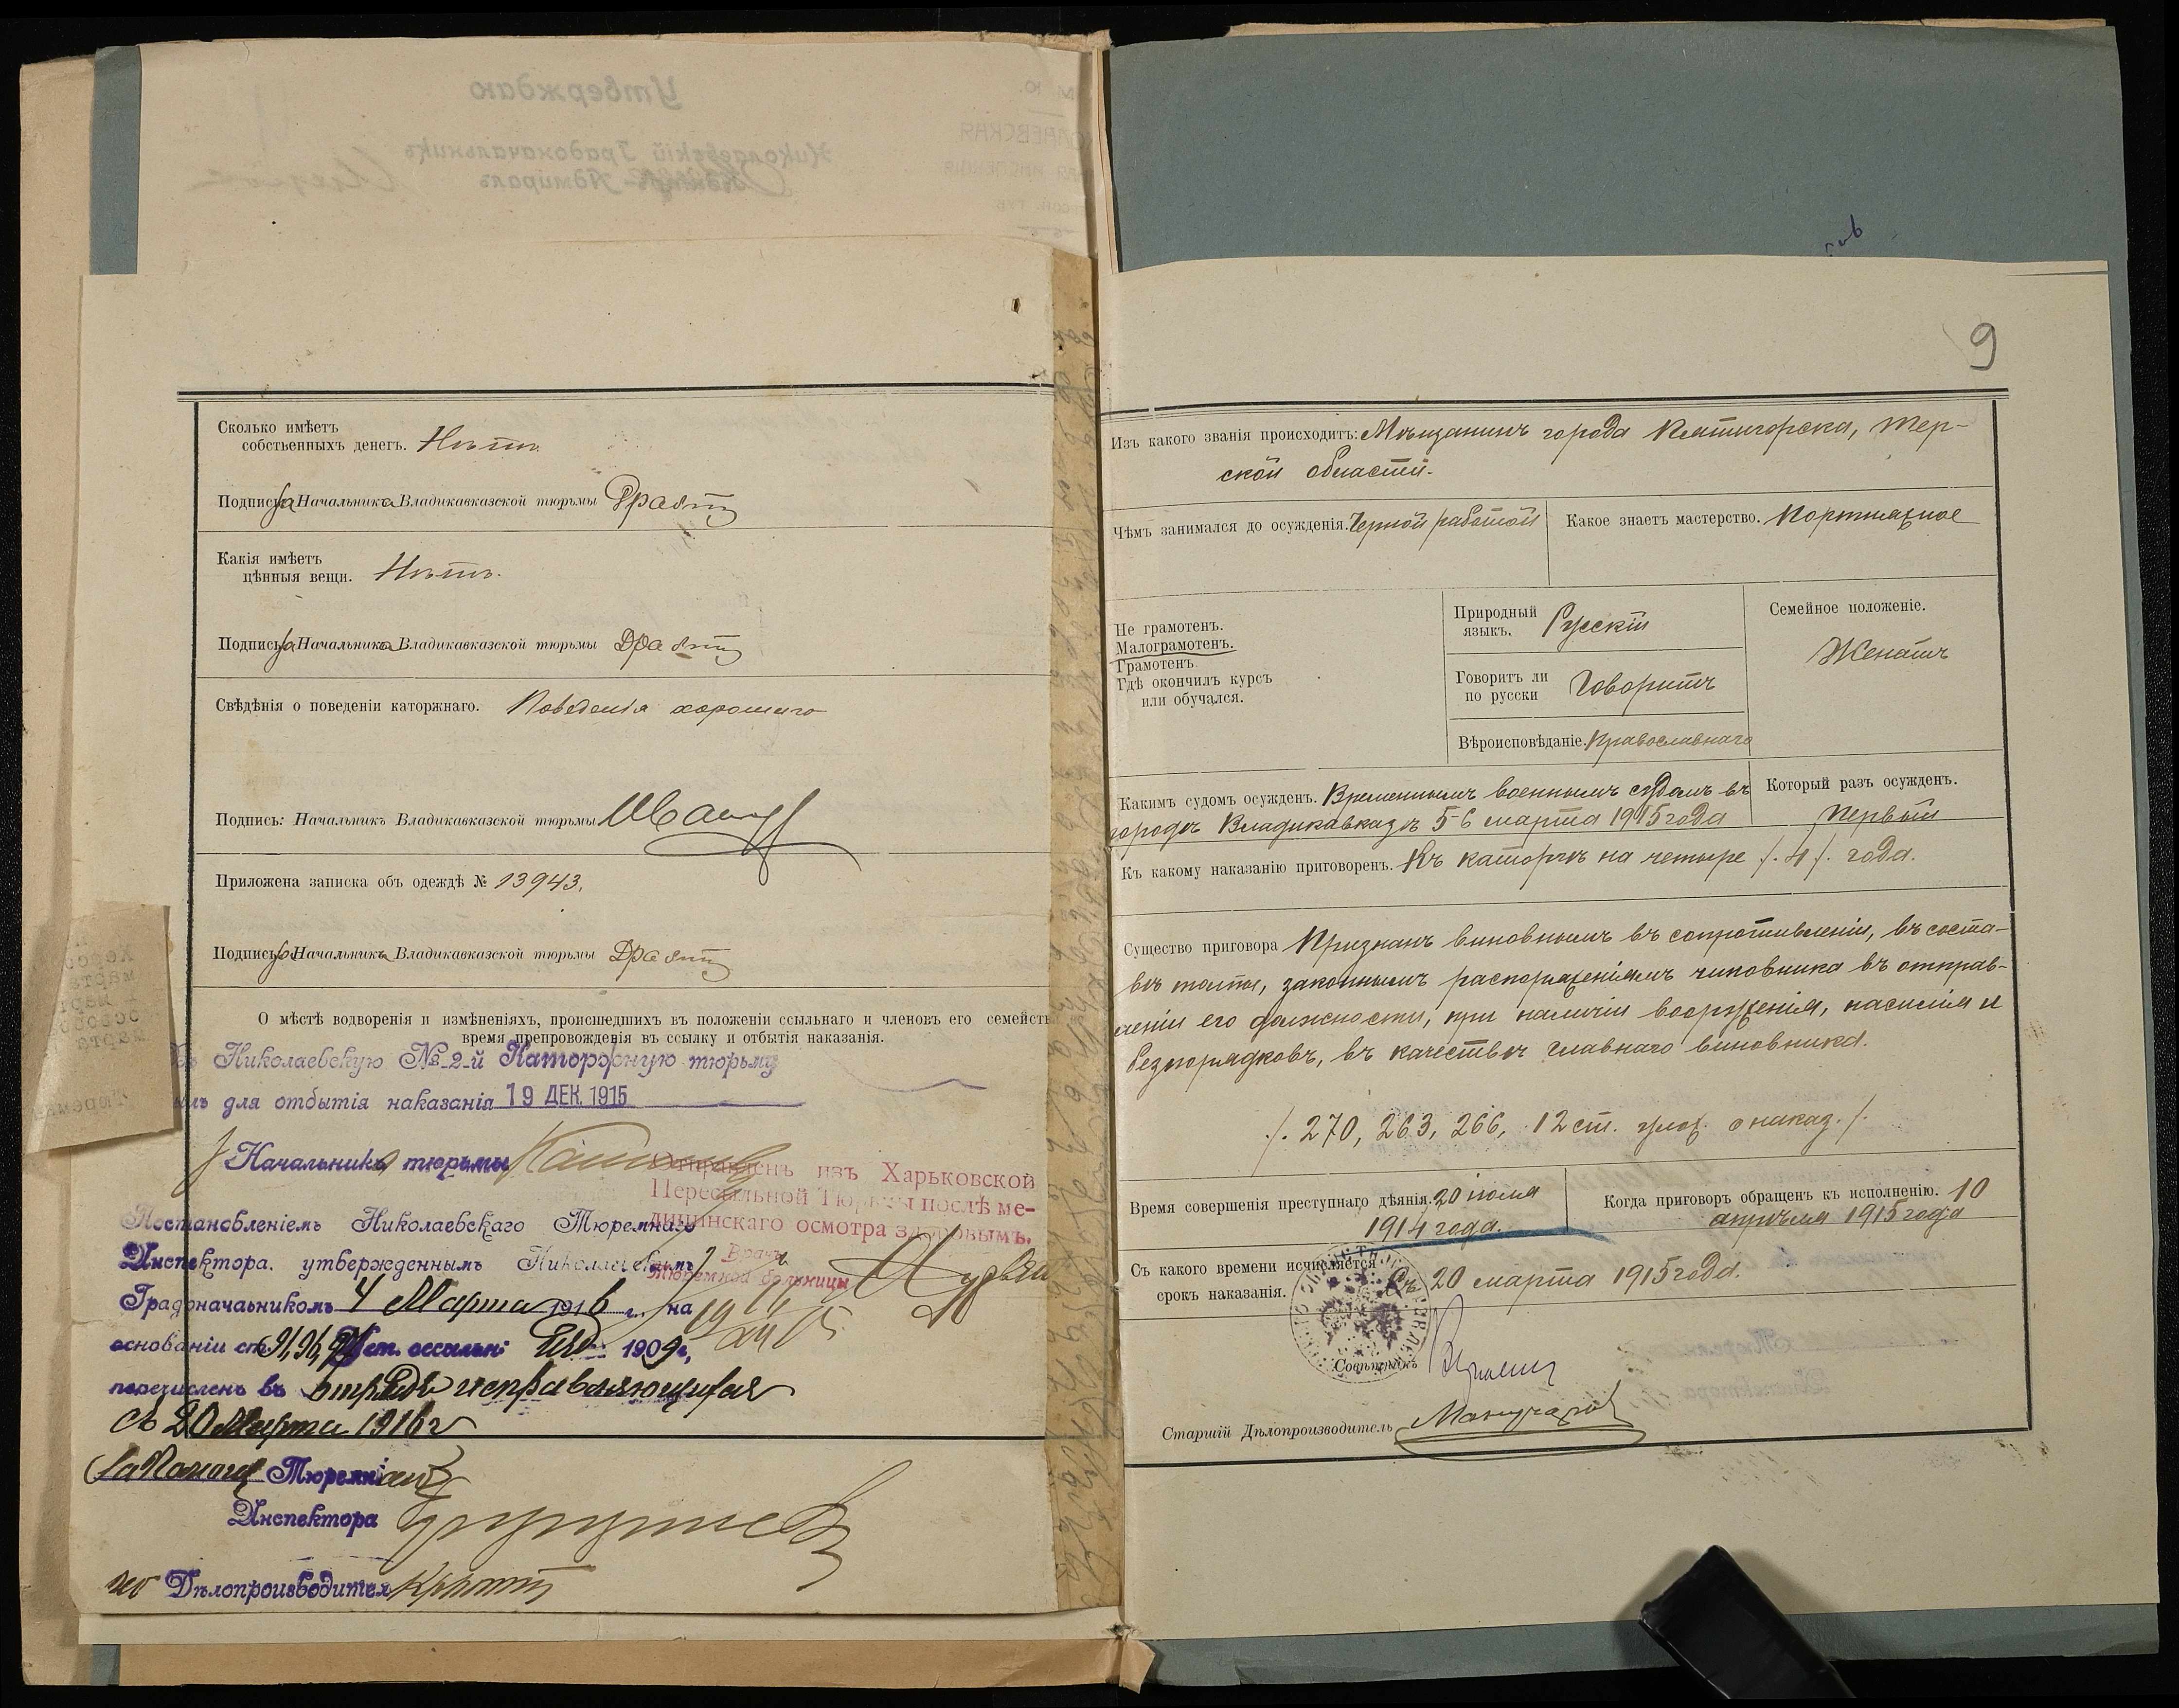 Сколько имѣетъ
собственныхъ денегъ. Нѣтъ.
Подпись: За Начальника Владикавказской тюрьмы
Какія имѣетъ
цѣнныя вещи. Нѣтъ.
Подпись: За Начальника Владикавказской тюрьмы
Свѣдѣнія о поведеніи каторжнаго. Поведенія хорошаго
Подпись: Начальникъ Владикавказской тюрьмы
Приложена записка объ одеждѣ № 13943.
Подпись: За Начальника Владикавказской тюрьмы
О мѣстѣ водворенія и измѣненіяхъ, происшедшихъ въ положеніи ссыльнаго и членовъ его семейств
время препровожденія въ ссылку и отбытія наказанія.
Николаевскую № 2-й Каторжную тюрьму
для отбытія наказанія 19 ДЕК. 1915
Начальника тюрьмы
Отправленъ изъ Харьковской
Пересыльной Тюрьмы послѣ ме-
дицинскаго осмотра здоровымъ.
Врачъ
Тюремной больницы
Постановленіемъ Николаевскаго Тюремнаго
Инспектора, утвержденнымъ Николаевскимъ
Градоначальникомъ 4 Марта 1916 г. на
основаніи ст. 91, 96, 97 Уст. ссыльн. Изд. 1909 г.,
перечисленъ въ отрядъ исправляющихся
съ 20 Марта 1916 г
За Тюремнаго
Инспектора
Дѣлопроизводителя
9
Изъ какого званія происходитъ: Мѣщанинъ города Пятигорска, Тер-
ской области.
Чѣмъ занимался до осужденія. Черной работой
Какое знаетъ мастерство. Портняжное
Не грамотенъ.
Малограмотенъ.
Грамотенъ
Гдѣ окончилъ курсъ
или обучался.
Природный
языкъ. Русскій
Говоритъ ли
по русски Говоритъ
Вѣроисповѣданіе. Православнаго
Семейное положеніе.
Женатъ
Какимъ судомъ осужденъ. Временнымъ военнымъ судомъ въ
городѣ Владикавказѣ 5-6 марта 1915 года
Который разъ осужденъ.
Первый
Къ какому наказанію приговоренъ. Къ каторгѣ на четыре /. 4 /. года.
Существо приговора Признанъ виновнымъ въ сопротивленіи, въ соста-
вѣ толпы, законнымъ распоряженіямъ чиновника въ отправ-
леніи его должности, при наличіи вооруженія, насилія и
безпорядковъ, въ качествѣ главнаго виновника.
/. 270, 263, 266, 12 ст. улож. о наказ. /.
Время совершенія преступнаго дѣянія. 20 іюля
1914 года.
Когда приговоръ обращенъ къ исполненію. 10
апрѣля 1915 года
Съ какого времени исчисляется
срокъ наказанія. Съ 20 марта 1915 года.
Совѣтникъ
Старшій Дѣлопроизводитель